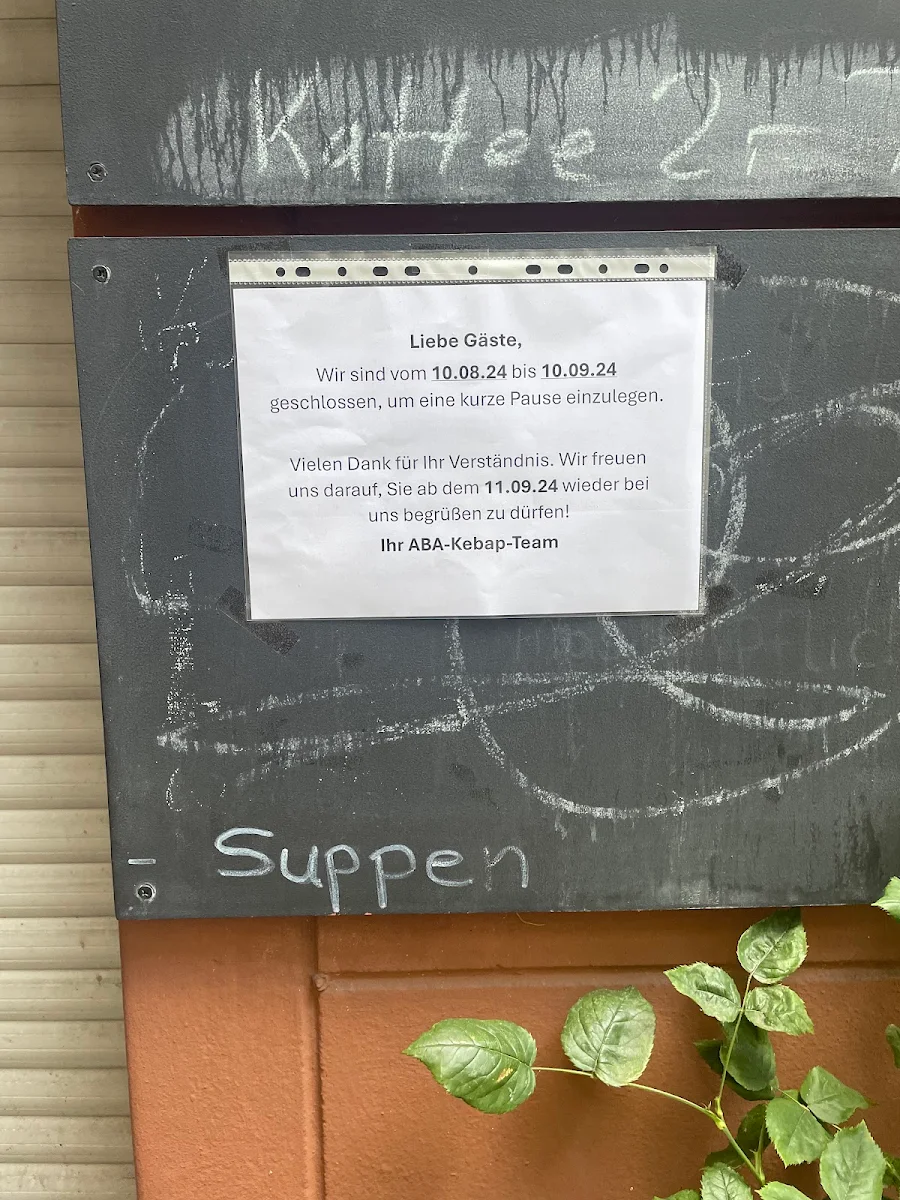 Kaffee 2,-
Liebe Gäste,
Wir sind vom 10.08.24 bis 10.09.24
geschlossen, um eine kurze Pause einzulegen.
Vielen Dank für Ihr Verständnis. Wir freuen
uns darauf, Sie ab dem 11.09.24 wieder bei
uns begrüßen zu dürfen!
Ihr ABA-Kebap-Team
- Suppen